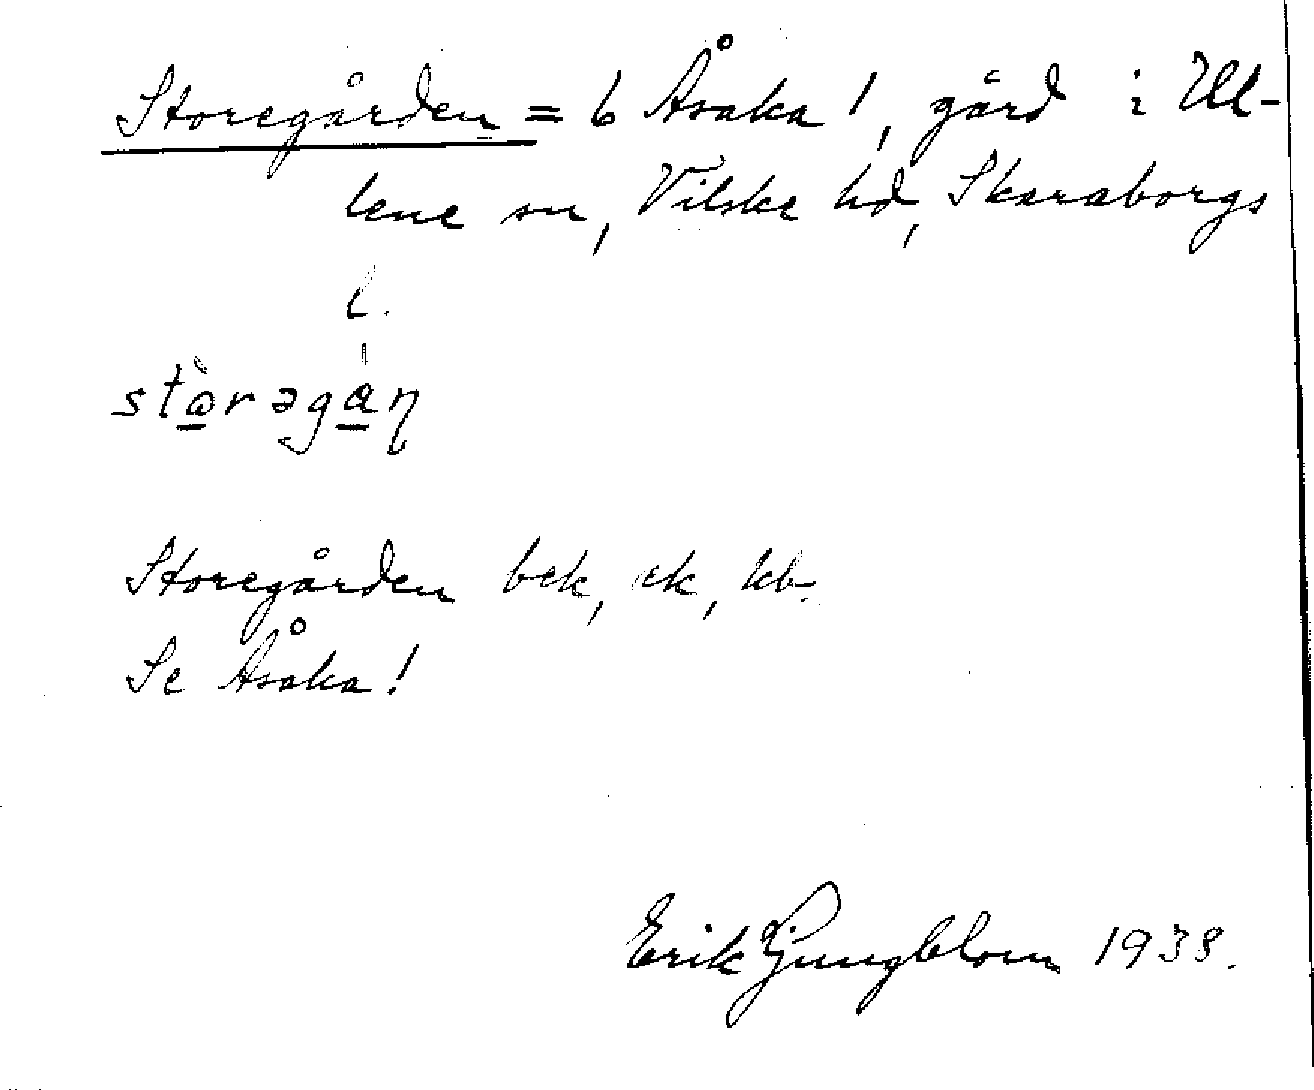 Storegården = b Åsaka 1, gård i Ul-
lene sn, Vilske hd, Skaraborgs
l.
Storegården bek, ek, kb.
Se Åsaka!
Erik Ljungblom 1938.